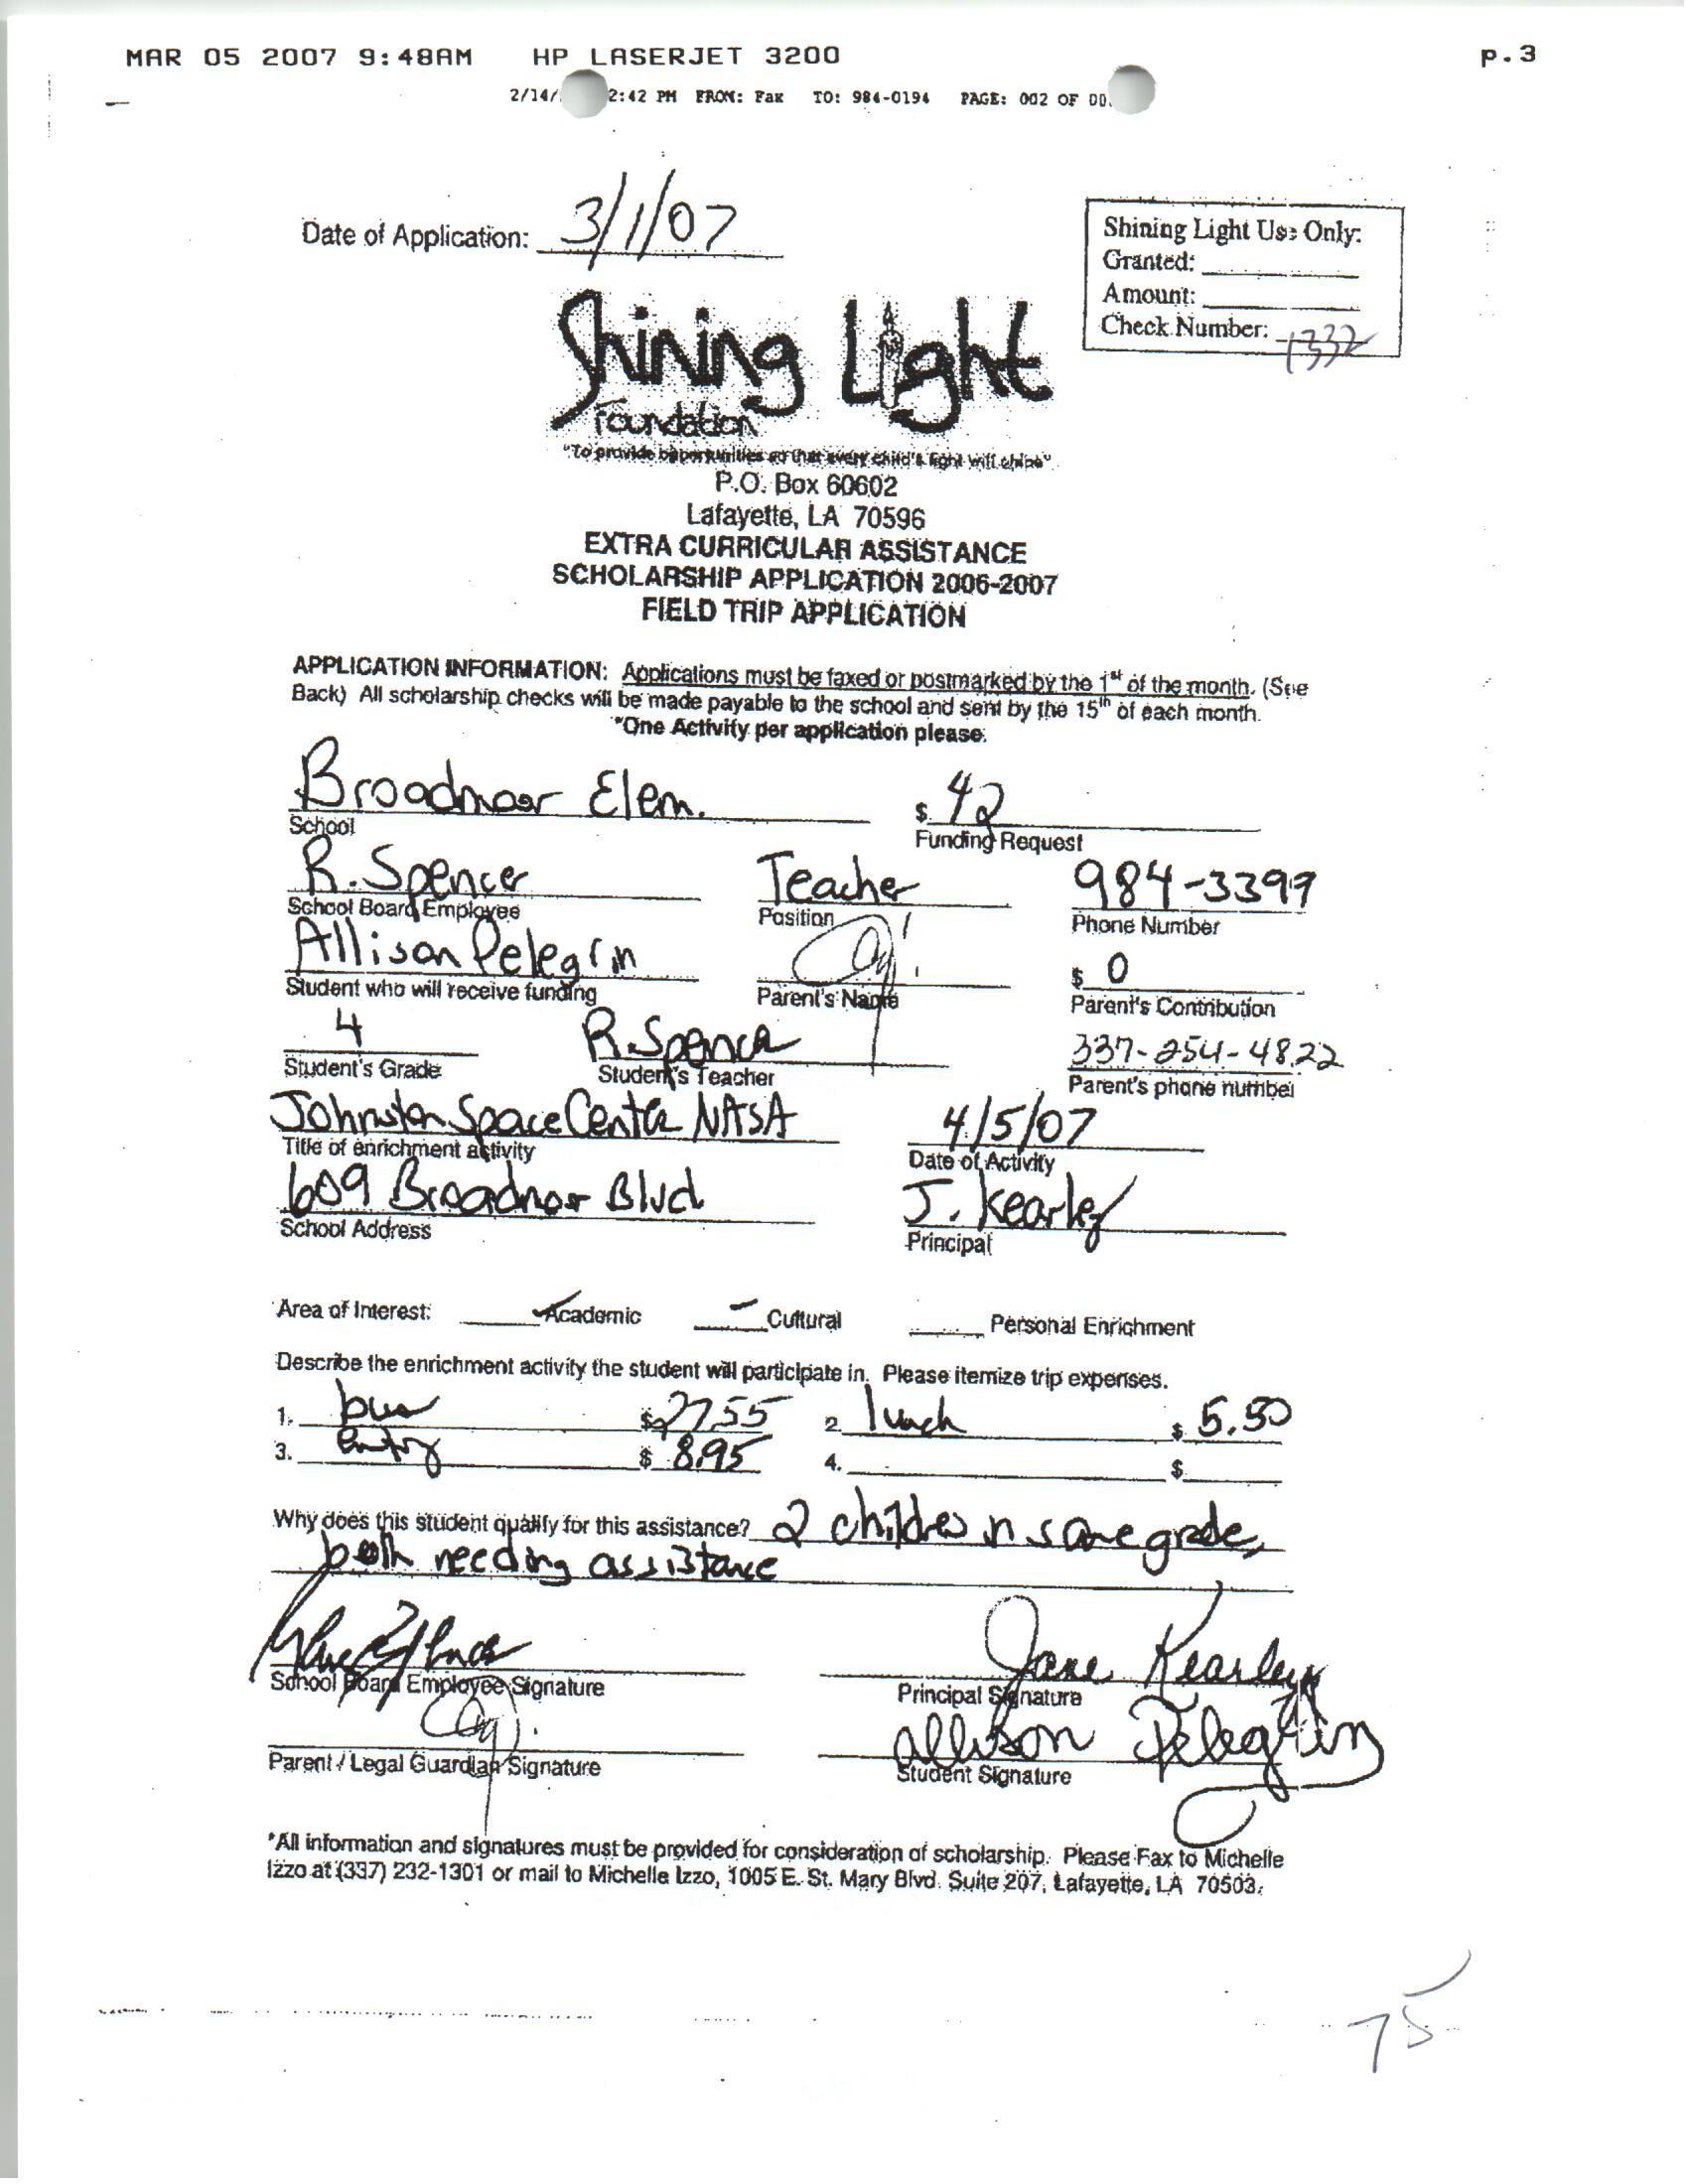 MAR 05 2007 9:48AM HP LASERJET 3200 p.3
2/14/ 2:42 PM FROM: Fax TO: 984-0194 PAGE: 002 OF 00
Date of Application: 3/1/07
Shining Light Use Only:
Granted:
Amount:
Check Number: 1332
Shining Light
Foundation
"To provide opportunities so that every child's light will shine"
P.O. Box 60602
Lafayette, LA 70596
EXTRA CURRICULAR ASSISTANCE
SCHOLARSHIP APPLICATION 2006-2007
FIELD TRIP APPLICATION
APPLICATION INFORMATION: Applications must be faxed or postmarked by the 1st of the month. (See
Back) All scholarship checks will be made payable to the school and sent by the 15th of each month.
*One Activity per application please.
Broadmoor Elem. $ 42
School Funding Request
R. Spencer Teacher 984-3397
School Board Employee Position Phone Number
Allison Pelegrin $ 0
Student who will receive funding Parent's Name Parent's Contribution
4 R. Spencer 337-254-4822
Student's Grade Student's Teacher Parent's phone number
Johnston Space Center NASA 4/5/07
Title of enrichment activity Date of Activity
609 Broadmoor Blvd J. Kearley
School Address Principal
Area of Interest: Academic Cultural Personal Enrichment
Describe the enrichment activity the student will participate in. Please itemize trip expenses.
1. bus $ 27.55 2. lunch $ 5.50
3. entry $ 8.95 4. $
Why does this student qualify for this assistance? 2 children in same grade,
both needing assistance
Jane Kearley
School Board Employee Signature Principal Signature
Allison Pelegrin
Parent / Legal Guardian Signature Student Signature
*All information and signatures must be provided for consideration of scholarship. Please Fax to Michelle
Izzo at (337) 232-1301 or mail to Michelle Izzo, 1005 E. St. Mary Blvd. Suite 207, Lafayette, LA 70503.
75